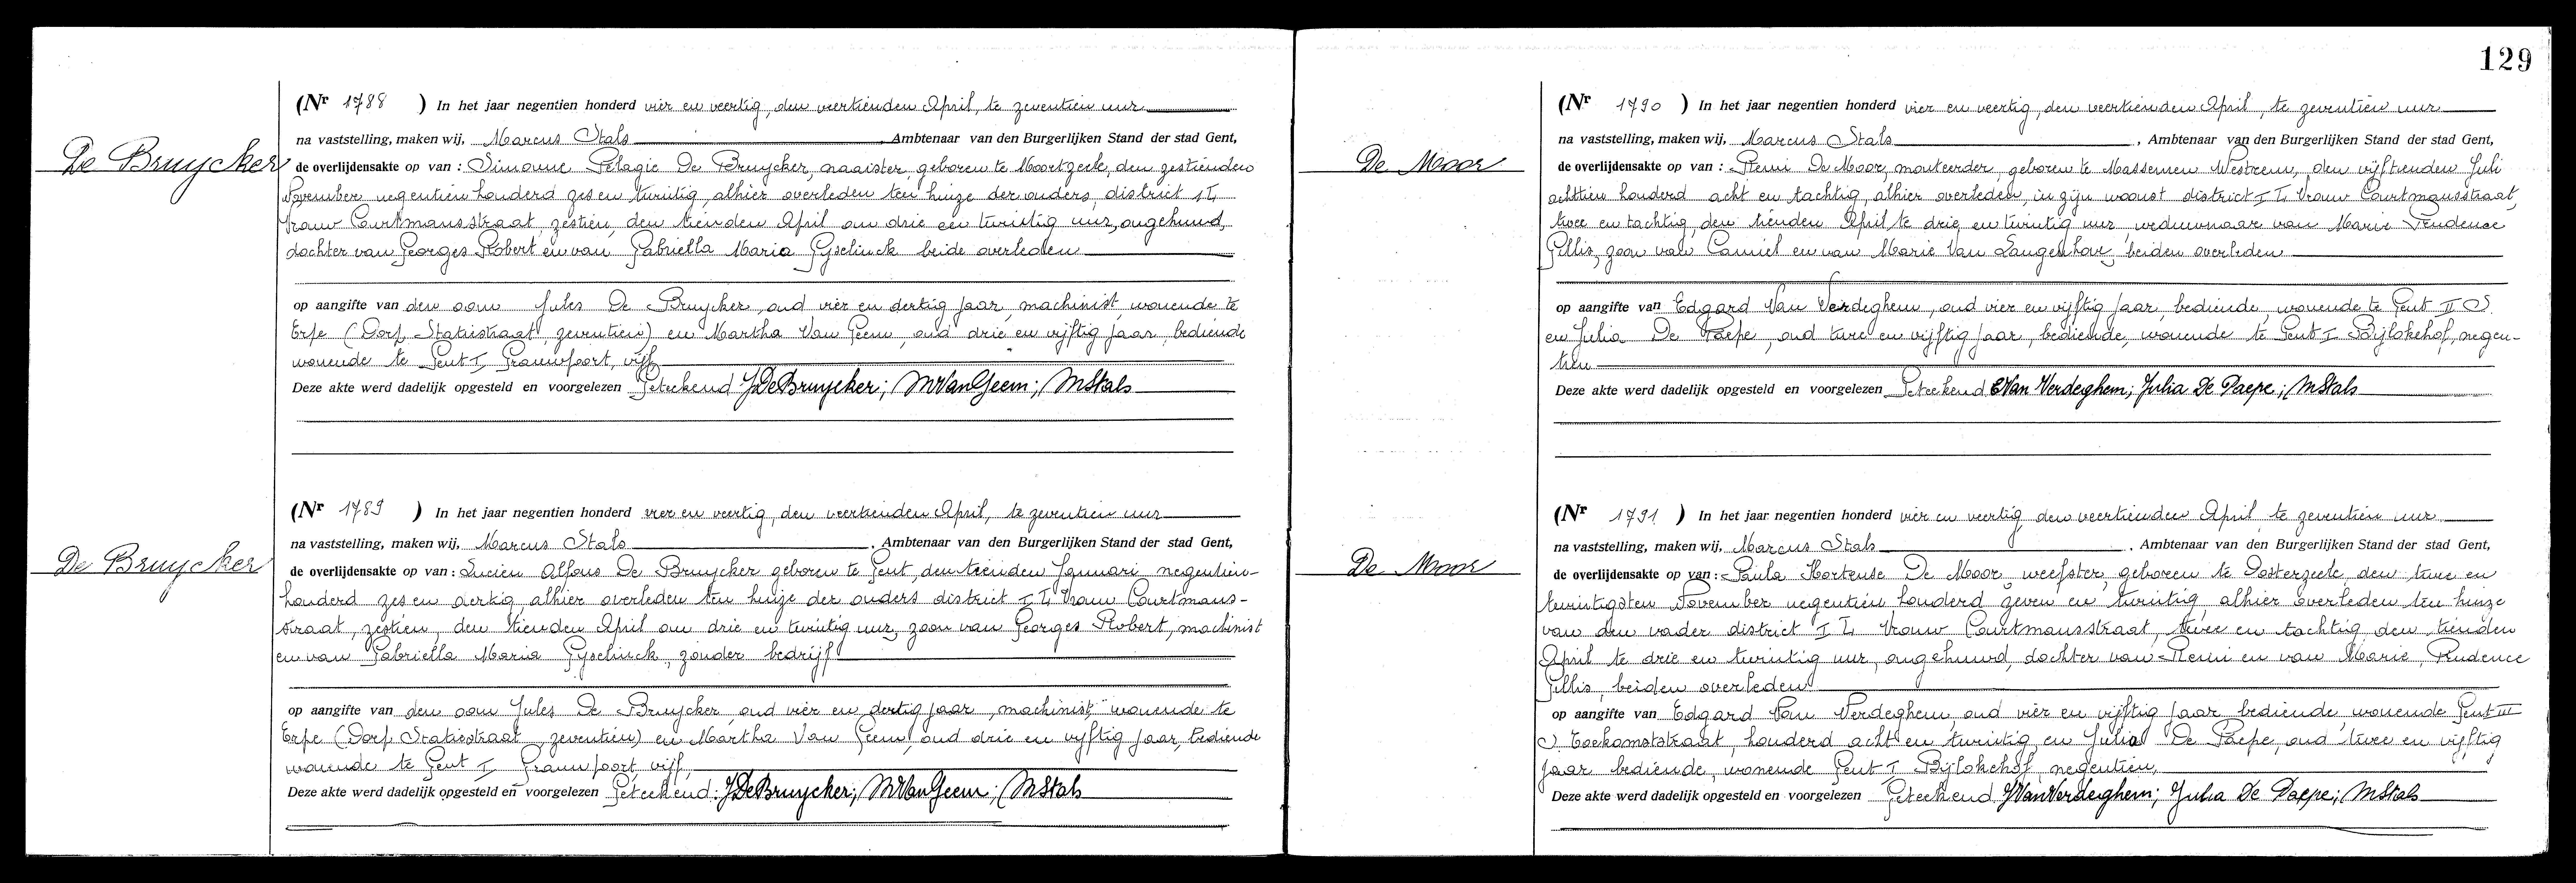 129
De Bruycker
(Nr 1788 ) In het jaar negentien honderd vier en veertig, den veertienden April, te zeventien uur
na vaststelling, maken wij, Marcus Stals, Ambtenaar van den Burgerlijken Stand der stad Gent,
de overlijdensakte op van : Simonne Pélagie De Bruycker, naaister, geboren te Moortzeele, den zestienden
November negentien honderd zes en twintig, alhier overleden ten huize der ouders, district I L
Vrouw Courtmansstraat, zestien, den tienden April om drie en twintig uur, ongehuwd,
dochter van Georges Robert en van Gabriella Maria Gyselinck beide overleden
op aangifte van den oom Jules De Bruycker, oud vier en dertig jaar, machinist, wonende te
Erpe (Dorp, Statiestraat, zeventien) en Martha Van Geem, oud drie en vijftig jaar, bediende
wonende te Gent I, Grauwpoort, vijf
Deze akte werd dadelijk opgesteld en voorgelezen Geteekend JDeBruycker; MVanGeem; MStals
De Bruycker
(Nr 1789 ) In het jaar negentien honderd vier en veertig, den veertienden April, te zeventien uur
na vaststelling, maken wij, Marcus Stals, Ambtenaar van den Burgerlijken Stand der stad Gent,
de overlijdensakte op van : Lucien Alfons De Bruycker geboren te Gent, den tienden Januari negentien-
honderd zes en dertig, alhier overleden ten huize der ouders district I L Vrouw Courtmans-
straat, zestien, den tienden April om drie en twintig uur, zoon van Georges Robert, machinist
en van Gabriella Maria Gyselinck, zonder bedrijf
op aangifte van den oom Jules De Bruycker, oud vier en dertig jaar, machinist, wonende te
Erpe (Dorp Statiestraat, zeventien) en Martha Van Geem, oud drie en vijftig jaar, bediende
wonende te Gent I Grauwpoort, vijf,
Deze akte werd dadelijk opgesteld en voorgelezen Geteekend: JDeBruycker; MVanGeem; MStals
De Moor
(Nr 1790 ) In het jaar negentien honderd vier en veertig, den veertienden April, te zeventien uur
na vaststelling, maken wij, Marcus Stals, Ambtenaar van den Burgerlijken Stand der stad Gent,
de overlijdensakte op van : Remi De Moor, monteerder, geboren te Massemen Westrem, den vijftienden Juli
achttien honderd acht en tachtig, alhier overleden, in zijn woonst district I L Vrouw Courtmansstraat,
twee en tachtig, den tienden April te drie en twintig uur, weduwnaar van Marie Prudence
Gillis, zoon van Camiel en van Marie Van Langenhove, beiden overleden
op aangifte van Edgard Van Verdeghem, oud vier en vijftig jaar, bediende, wonende te Gent II S
en Julia De Paepe, oud twee en vijftig jaar, bediende, wonende te Gent I Bijlokehof, negen-
tien
Deze akte werd dadelijk opgesteld en voorgelezen Geteekend EVan Verdeghem; Julia De Paepe; MStals
De Moor
(Nr 1791 ) In het jaar negentien honderd vier en veertig den veertienden April te zeventien uur
na vaststelling, maken wij, Marcus Stals, Ambtenaar van den Burgerlijken Stand der stad Gent,
de overlijdensakte op van : Paula Hortense De Moor, weefster, geboren te Oosterzeele, den twee en
twintigsten November negentien honderd zeven en twintig, alhier overleden ten huize
van den vader district I L Vrouw Courtmansstraat, twee en tachtig den tienden
April te drie en twintig uur, ongehuwd, dochter van Remi en van Marie, Prudence
Gillis, beiden overleden
op aangifte van Edgard Van Verdeghem, oud vier en vijftig jaar, bediende, wonende Gent III
S. Toekomststraat, honderd acht en twintig, en Julia De Paepe, oud twee en vijftig
jaar bediende, wonende Gent I Bijlokehof, negentien,
Deze akte werd dadelijk opgesteld en voorgelezen Geteekend VanVerdeghem; Julia De Paepe; MStals